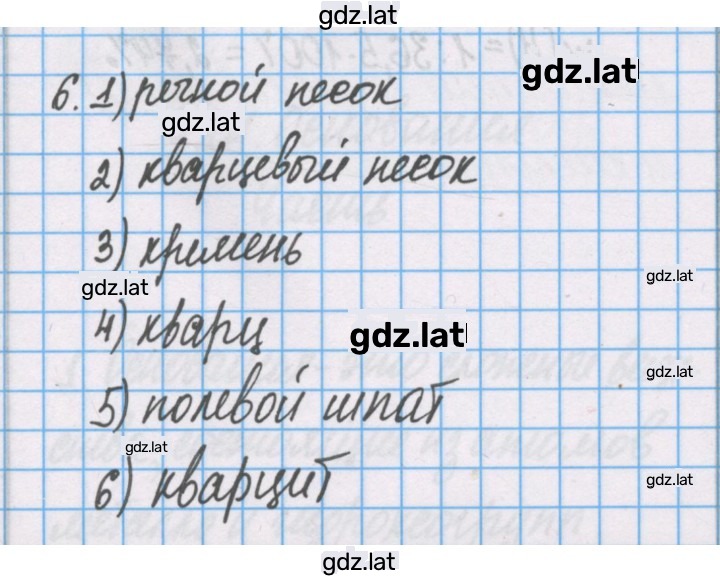 gdz.lat
gdz.lat
6. 1) речной песок
gdz.lat
2) кварцевый песок
3) кремень
gdz.lat
gdz.lat
4) кварц
gdz.lat
gdz.lat
5) полевой шпат
gdz.lat
6) кварцит
gdz.lat
gdz.lat